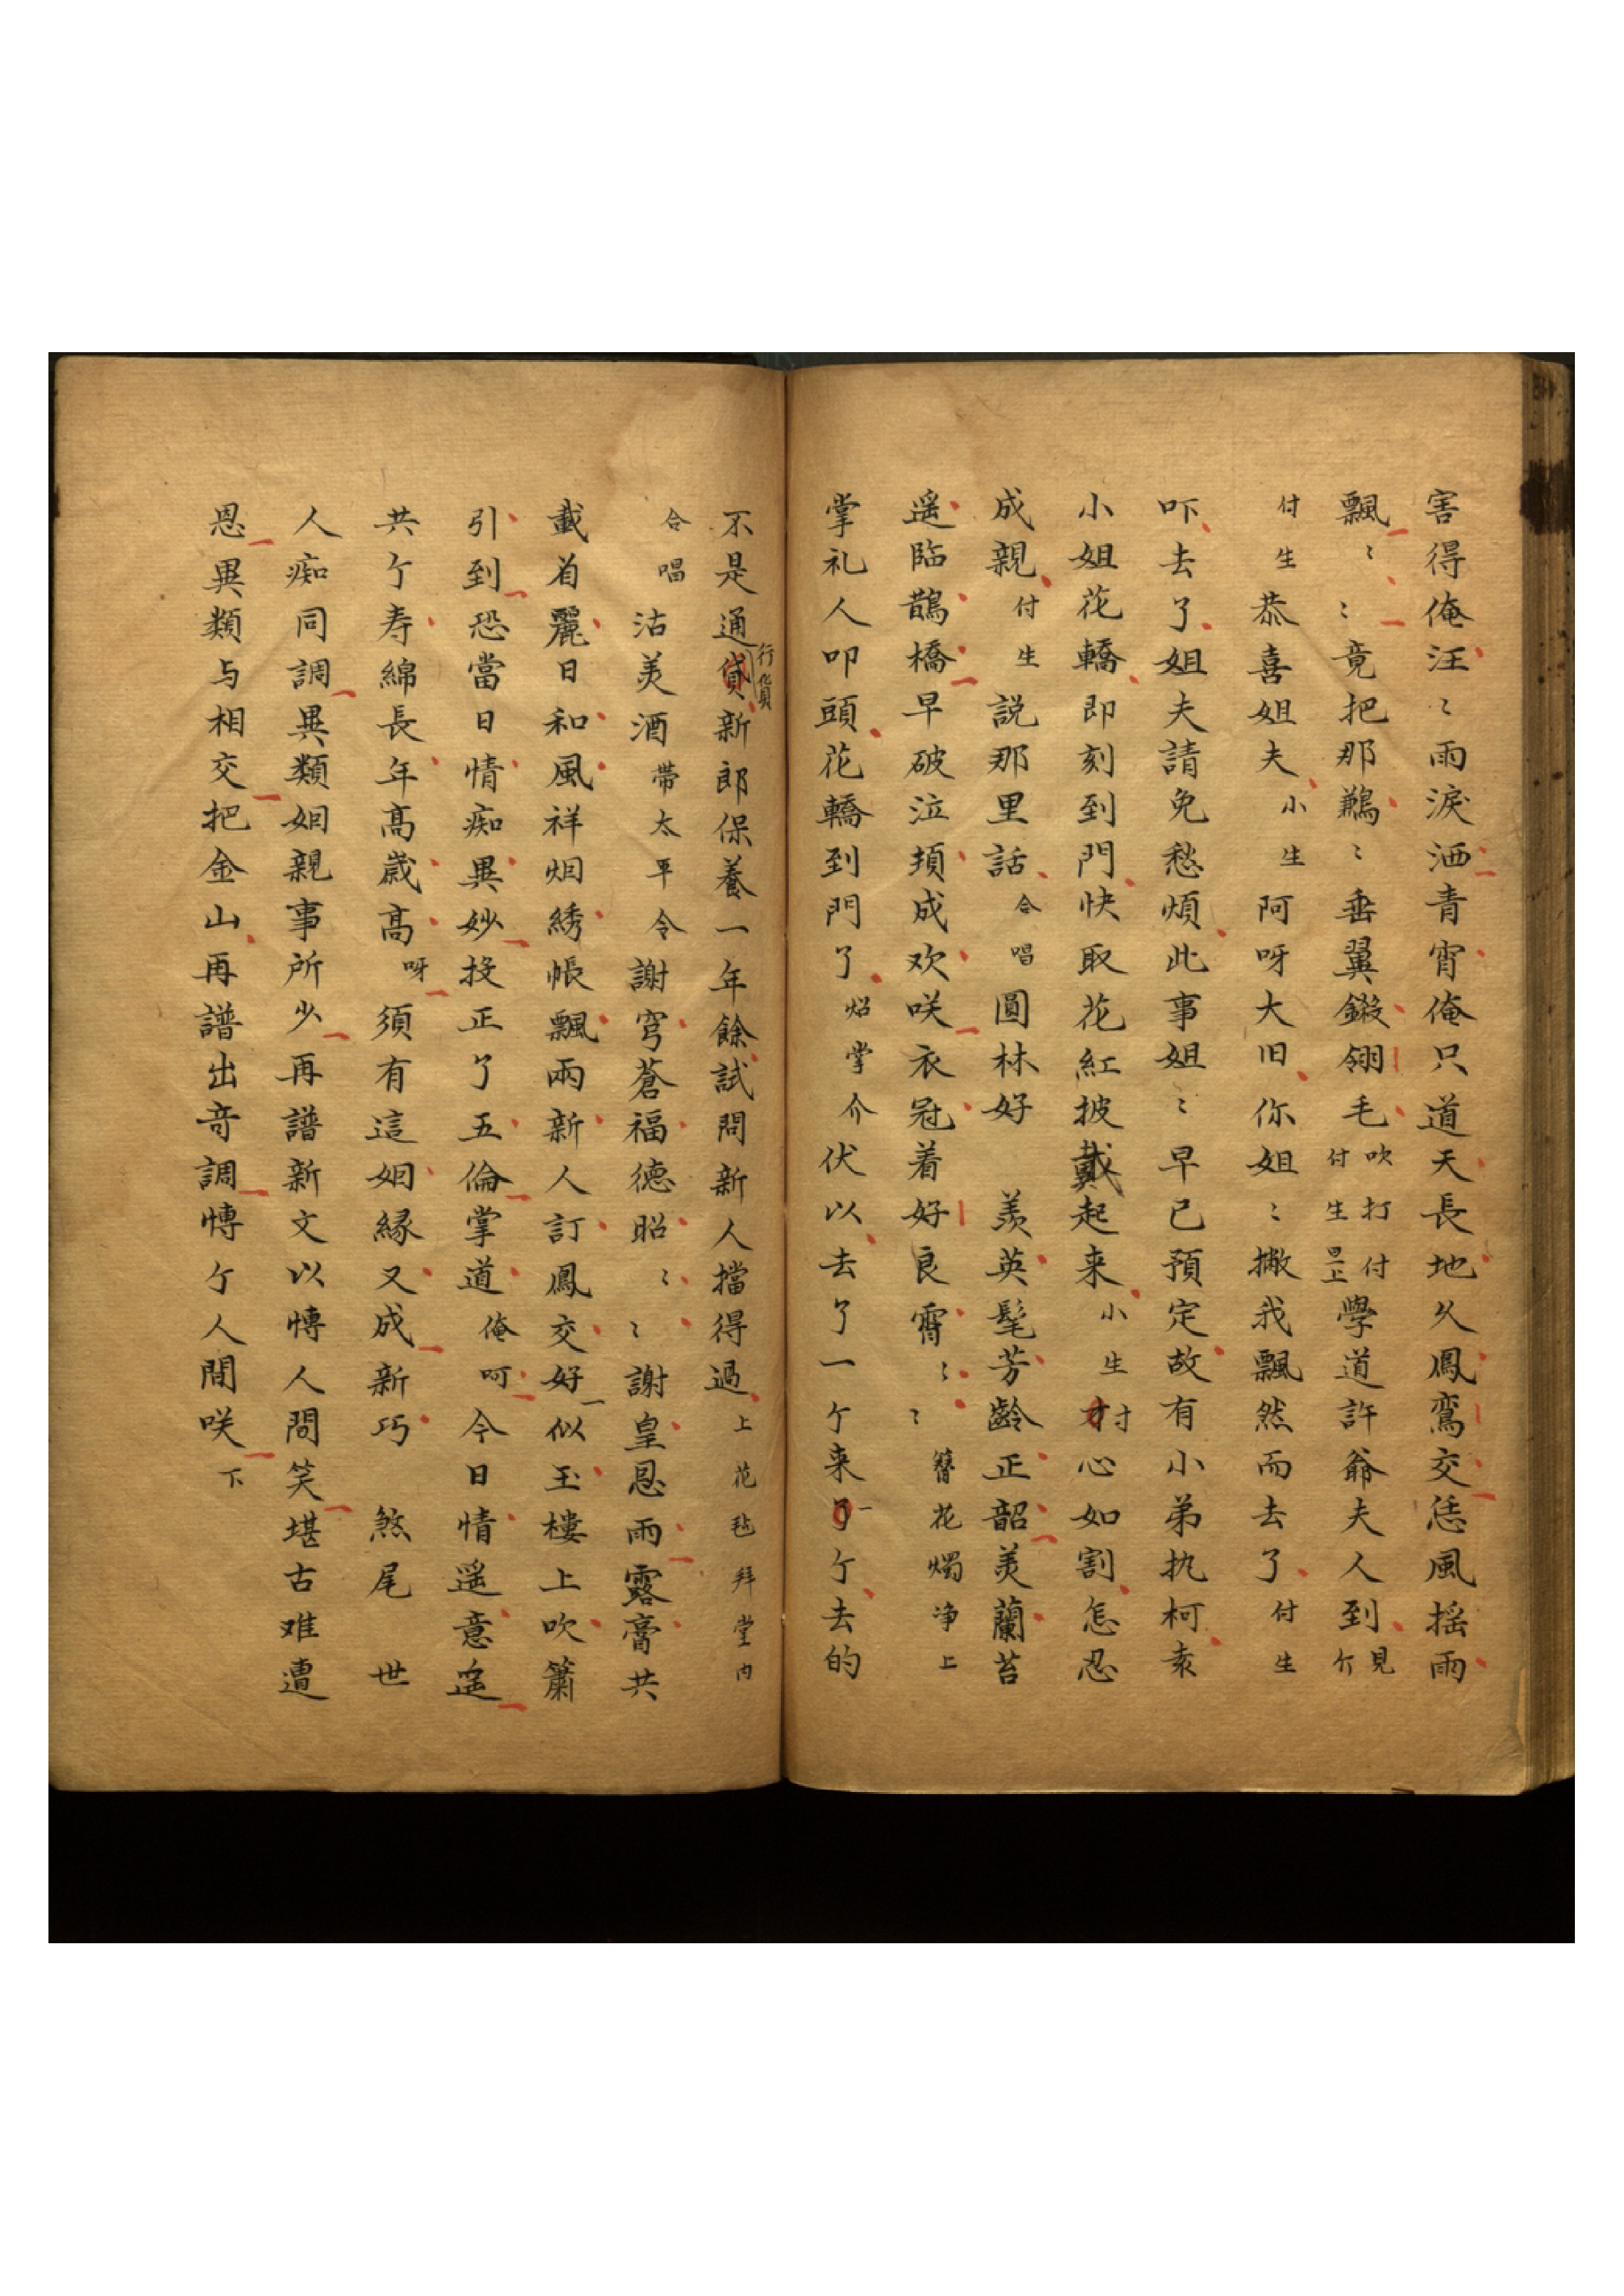 害得俺汪〻雨淚洒青宵俺只道天長地久鳳鸞交恁風搖雨
飄〻〻竟把那鶼〻垂翼鎩翎毛吹打付生上付學道許爺夫人到見介
付生恭喜姐夫小生阿呀大旧你姐〻撇我飄然而去了付生
吓去了姐夫請免愁煩此事姐〻早已預定故有小弟执柯袁
小姐花轎即刻到門快取花紅披戴起来小生寸心如割怎忍
成親付生説那里話合唱圓林好羨英髦芳齡正韶羙蘭苕
遥臨鵲橋早破泣頻成欢咲衣冠着好良霄〻〻簪花燭净上
掌礼人叩頭花轎到門了炤掌介伏以去了一个来一个去的
不是通行貨新郎保養一年餘試問新人擋得過上花毡拜堂内
合唱沽美酒帶太平令謝穹蒼福德昭〻〻謝皇恩雨露膏共
載着麗日和風祥烟綉帳飄兩新人訂鳳交好一似玉樓上吹簫
引到恐當日情痴異妙投正了五倫掌道俺呵今日情遥意遥
共个寿綿長年高歲高呀須有這姻緣又成新巧煞尾世
人痴同調異類姻親事所少再譜新文以慱人間笑堪古难遭
恩異類与相交把金山再譜出奇調慱个人間咲下